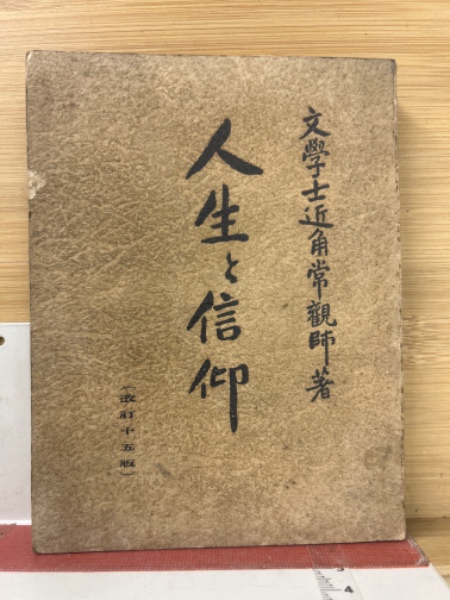 文學士近角常觀師著
人生と信仰
（改訂十五版）
3
4